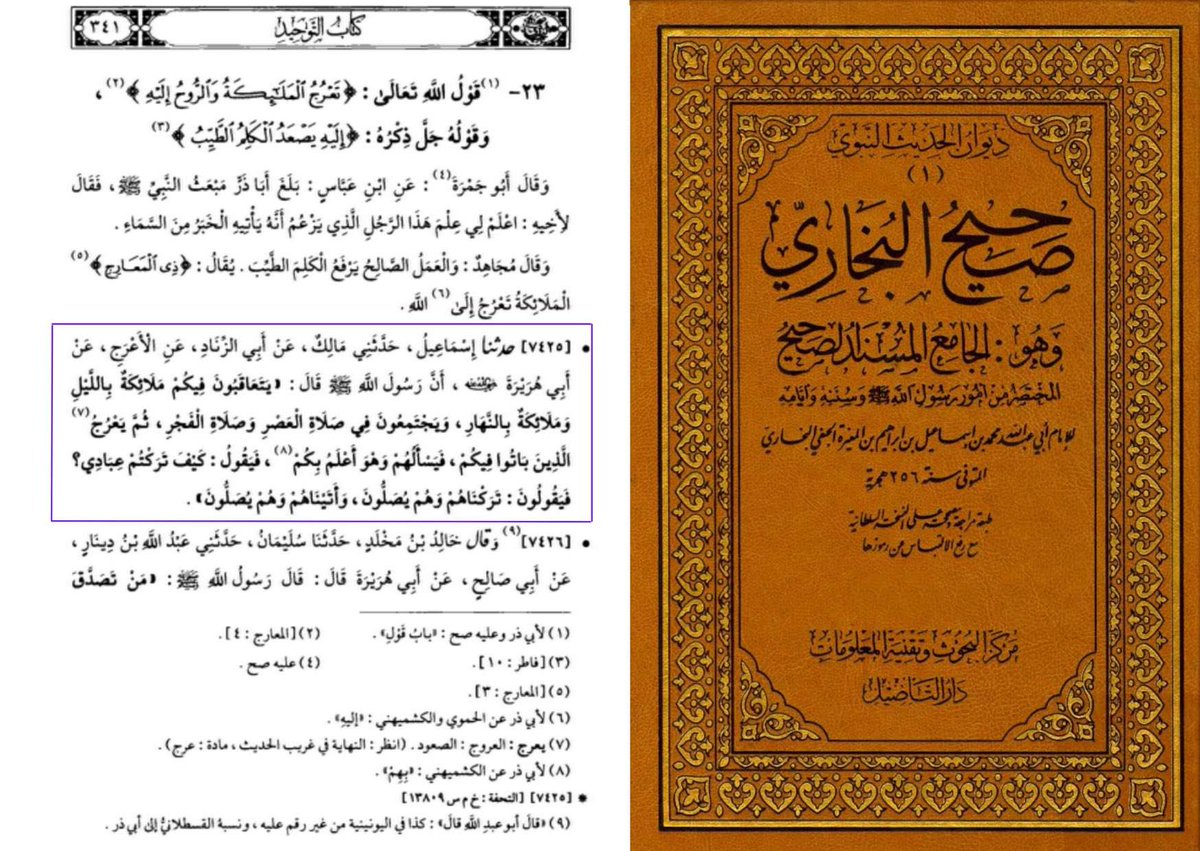 كتاب التوحيد
٣٤١
٢٣- (١) قَوْلُ اللَّهِ تَعَالَىٰ : ﴿ تَعْرُجُ ٱلْمَلَٰٓئِكَةُ وَٱلرُّوحُ إِلَيْهِ ﴾ (٢) ،
وَقَوْلُهُ جَلَّ ذِكْرُهُ : ﴿ إِلَيْهِ يَصْعَدُ ٱلْكَلِمُ ٱلطَّيِّبُ ﴾ (٣)
وَقَالَ أَبُو جَمْرَةَ (٤) : عَنِ ابْنِ عَبَّاسٍ : بَلَغَ أَبَا ذَرٍّ مَبْعَثُ النَّبِيِّ ﷺ ، فَقَالَ
لِأَخِيهِ : اعْلَمْ لِي عِلْمَ هَذَا الرَّجُلِ الَّذِي يَزْعُمُ أَنَّهُ يَأْتِيهِ الْخَبَرُ مِنَ السَّمَاءِ .
وَقَالَ مُجَاهِدٌ : وَالْعَمَلُ الصَّالِحُ يَرْفَعُ الْكَلِمَ الطَّيِّبَ . يُقَالُ : ﴿ ذِى ٱلْمَعَارِجِ ﴾ (٥)
الْمَلَائِكَةُ تَعْرُجُ إِلَىٰ (٦) اللَّهِ .
• [٧٤٢٥] حدثنا إِسْمَاعِيلُ ، حَدَّثَنِي مَالِكٌ ، عَنْ أَبِي الزِّنَادِ ، عَنِ الْأَعْرَجِ ، عَنْ
أَبِي هُرَيْرَةَ ﵁ ، أَنَّ رَسُولَ اللَّهِ ﷺ قَالَ : «يَتَعَاقَبُونَ فِيكُمْ مَلَائِكَةٌ بِاللَّيْلِ
وَمَلَائِكَةٌ بِالنَّهَارِ ، وَيَجْتَمِعُونَ فِي صَلَاةِ الْعَصْرِ وَصَلَاةِ الْفَجْرِ ، ثُمَّ يَعْرُجُ (٧)
الَّذِينَ بَاتُوا فِيكُمْ ، فَيَسْأَلُهُمْ وَهُوَ أَعْلَمُ بِكُمْ (٨) ، فَيَقُولُ : كَيْفَ تَرَكْتُمْ عِبَادِي ؟
فَيَقُولُونَ : تَرَكْنَاهُمْ وَهُمْ يُصَلُّونَ ، وَأَتَيْنَاهُمْ وَهُمْ يُصَلُّونَ» .
• [٧٤٢٦] (٩) وَقَالَ خَالِدُ بْنُ مَخْلَدٍ ، حَدَّثَنَا سُلَيْمَانُ ، حَدَّثَنِي عَبْدُ اللَّهِ بْنُ دِينَارٍ ،
عَنْ أَبِي صَالِحٍ ، عَنْ أَبِي هُرَيْرَةَ قَالَ : قَالَ رَسُولُ اللَّهِ ﷺ : «مَنْ تَصَدَّقَ
(١) لأبي ذر وعليه صح : «بابُ قَوْلِ» . (٢) [المعارج : ٤] .
(٣) [فاطر : ١٠] . (٤) عليه صح .
(٥) [المعارج : ٣] .
(٦) لأبي ذر عن الحموي والكشميهني : «إليهِ» .
(٧) يعرج : العروج : الصعود . (انظر : النهاية في غريب الحديث ، مادة : عرج) .
(٨) لأبي ذر عن الكشميهني : «بِهِمْ» .
* [٧٤٢٥] [التحفة : خ م س ١٣٨٠٩]
(٩) «قال أبو عبدِ اللَّهِ قالَ» : كذا في اليونينية من غير رقم عليه ، ونسبهُ القسطلانيُّ إلى أبي ذر .
ديوان الحديث النبوي
(١)
صحيح البخاري
وهو : الجامع المسند الصحيح
المختصر من أمور رسول الله ﷺ وسننه وأيامه
للإمام أبي عبد الله محمد بن إسماعيل بن إبراهيم بن المغيرة الجعفي البخاري
المتوفى سنة ٢٥٦ هجرية
طبعة مراجعة ومصححة على النسخة السلطانية
مع رفع الالتباس عن رموزها
مركز البحوث وتقنية المعلومات
دار التأصيل